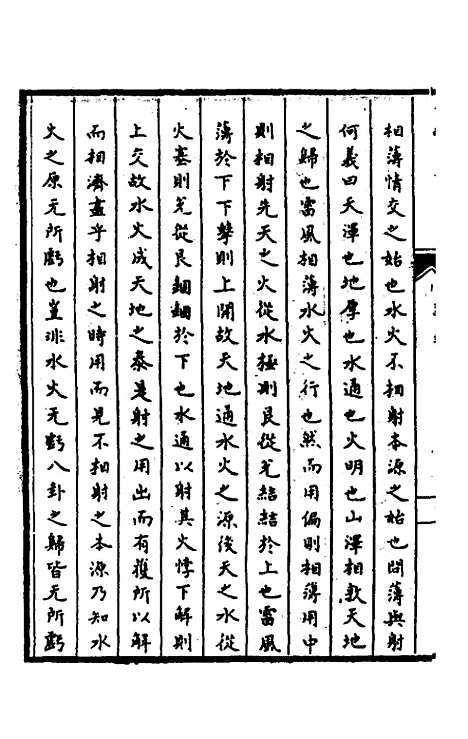 相薄情交之始也水火不相射本源之始也問薄與射
何義曰天渾也地厚也水通也火明也山澤相教天地
之歸也雷風相薄水火之行也然而用偏則相薄用中
則相射先天之火從水極則艮從兌結結於上也雷風
薄於下下孽則上開故天地通水火之源後天之水從
火塞則兌從艮絪絪於下也水通以射其火悖下解則
上交故水火成天地之泰是射之用出而有獲所以解
而相濟盡乎相射之時用而見不相射之本源乃知水
火之原无所虧也豈非水火无虧八卦之歸皆无所虧